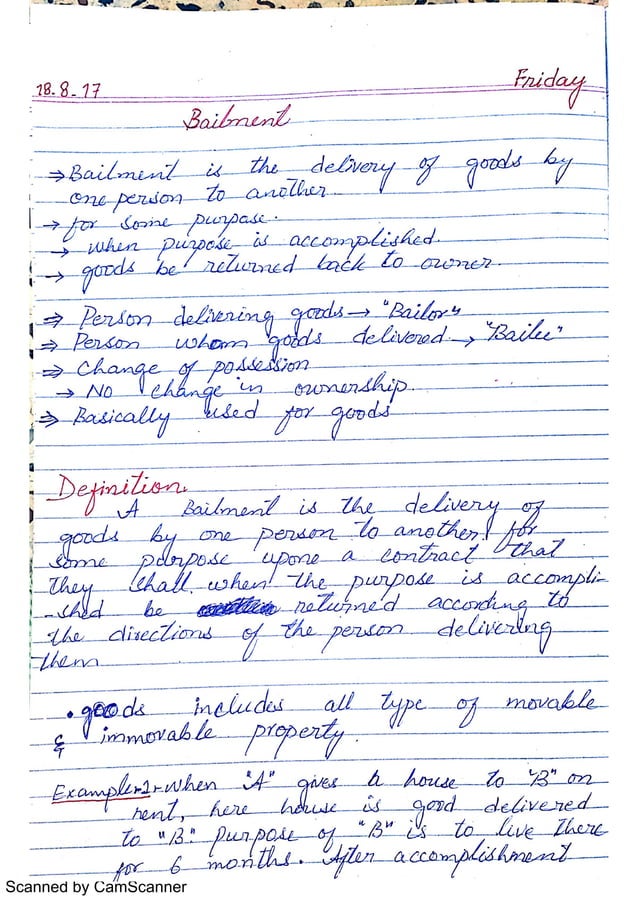 18.8-17 Friday
Bailment
⇒ Bailment is the delivery of goods by
one person to another
→ for some purpose.
→ when purpose is accomplished.
→ goods be returned back to owner.
⇒ Person delivering goods → "Bailor"
⇒ Person whom goods delivered → "Bailee"
⇒ Change of possession
→ No change in ownership.
⇒ Basically used for goods
Definition.
A Bailment is the delivery of
goods by one person to another, for
some purpose upone a contract that
they shall, when the purpose is accompli-
-shed be returned according to
the directions of the person delivering
them
• goods includes all type of movable
& immovable property.
Example-1- When "A" gives a house to "B" on
rent, here house is good delivered
to "B". Purpose of "B" is to live there
for 6 months. After accomplishment
Scanned by CamScanner